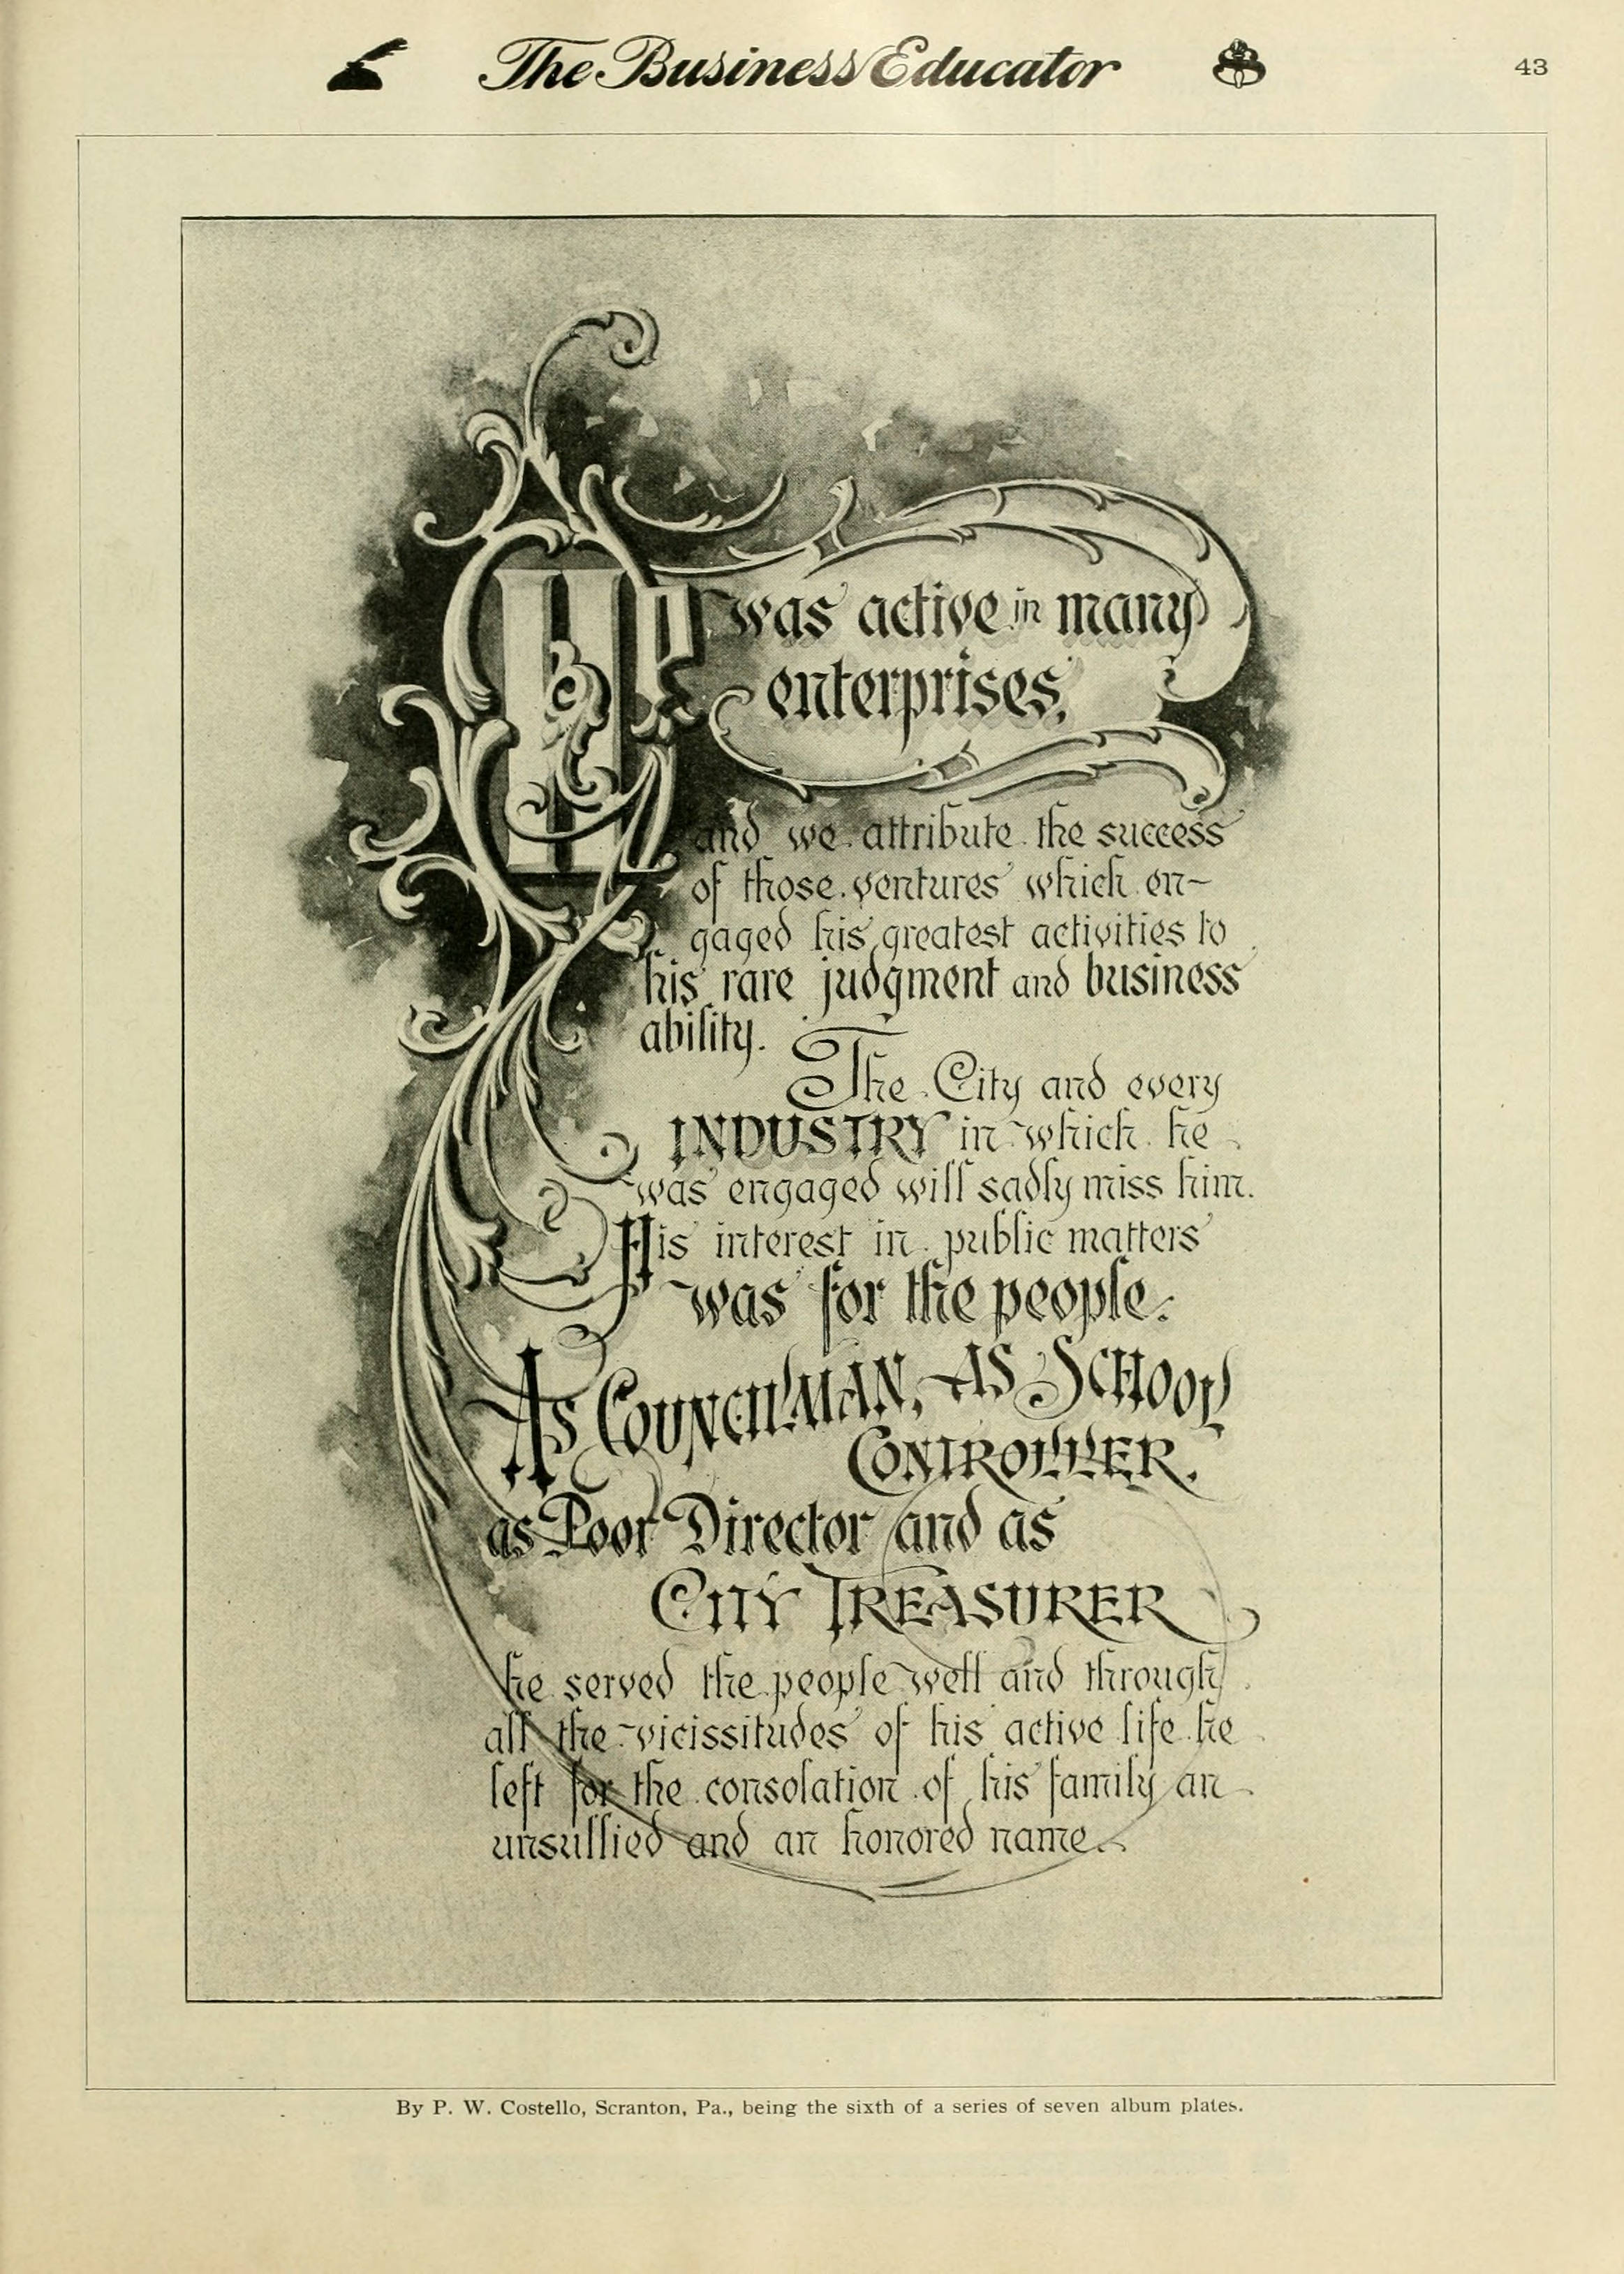 The Business Educator
43
He was active in many
enterprises,
and we attribute the success
of those ventures which en-
gaged his greatest activities to
his rare judgment and business
ability.
The City and every
INDUSTRY in which he
was engaged will sadly miss him.
His interest in public matters
was for the people.
AS COUNCILMAN, AS SCHOOL
CONTROLLER,
as Poor Director and as
CITY TREASURER
he served the people well and through
all the vicissitudes of his active life he
left for the consolation of his family an
unsullied and an honored name.
By P. W. Costello, Scranton, Pa., being the sixth of a series of seven album plates.